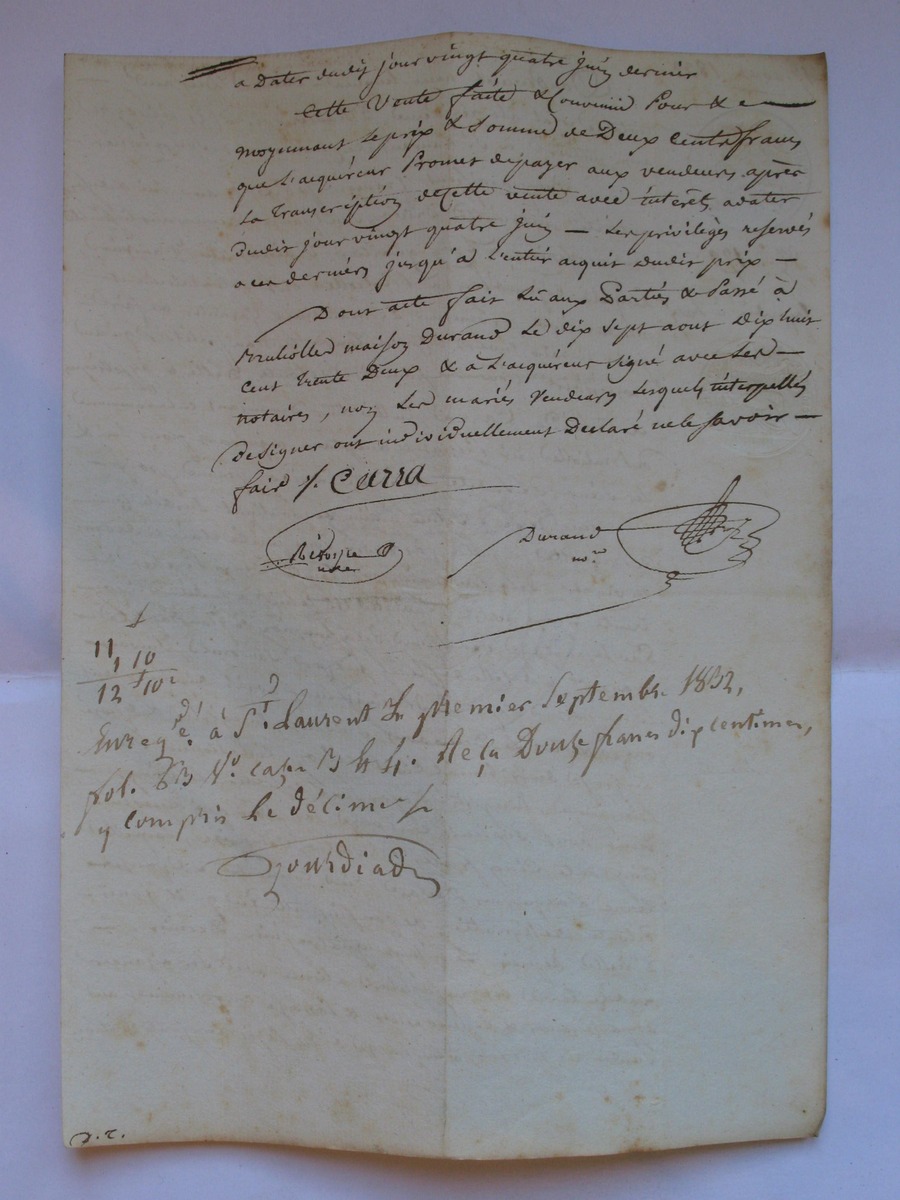 a Dater dudit jour vingt quatre juin dernier
Cette Vente faite & Convenue Pour & e
moyennant le prix & Somme de Deux Cents francs
que L'acquéreur Promet de payer aux vendeurs après
La Transcription de Cette vente avec intérêt, a dater
Dudit jour vingt quatre juin — Les privilèges reservés
a ces derniers jusqu'à L'entier acquit dudit prix —
Dont acte fait Lu aux Parties & Passé à
maison Durand Le dix sept aout Dix huit
cent trente Deux & a L'acquéreur Signé avec Les —
notaires, non Les mariés Vendeurs Lesquels interpellés
De Signer ont individuellement Declaré ne le Savoir —
fair /. Carra
Durand
no.re
11
1, 10
12 f 10 c
Enregé. à St. Laurent Le premier Septembre 1832,
fol. 63 Vo. caze 3 & 4. Reçu Douze francs dix centimes,
y compris Le décime /.